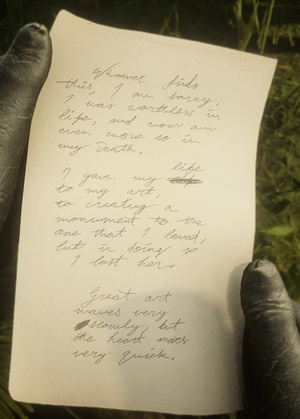 Whoever finds
this, I am sorry.
I was worthless in
life, and now am
even more so in
my death.
I gave my life
to my art,
to creating a
monument to the
one that I loved,
but in doing so
I lost her.
Great art
moves very
slowly, but
the heart moves
very quick.